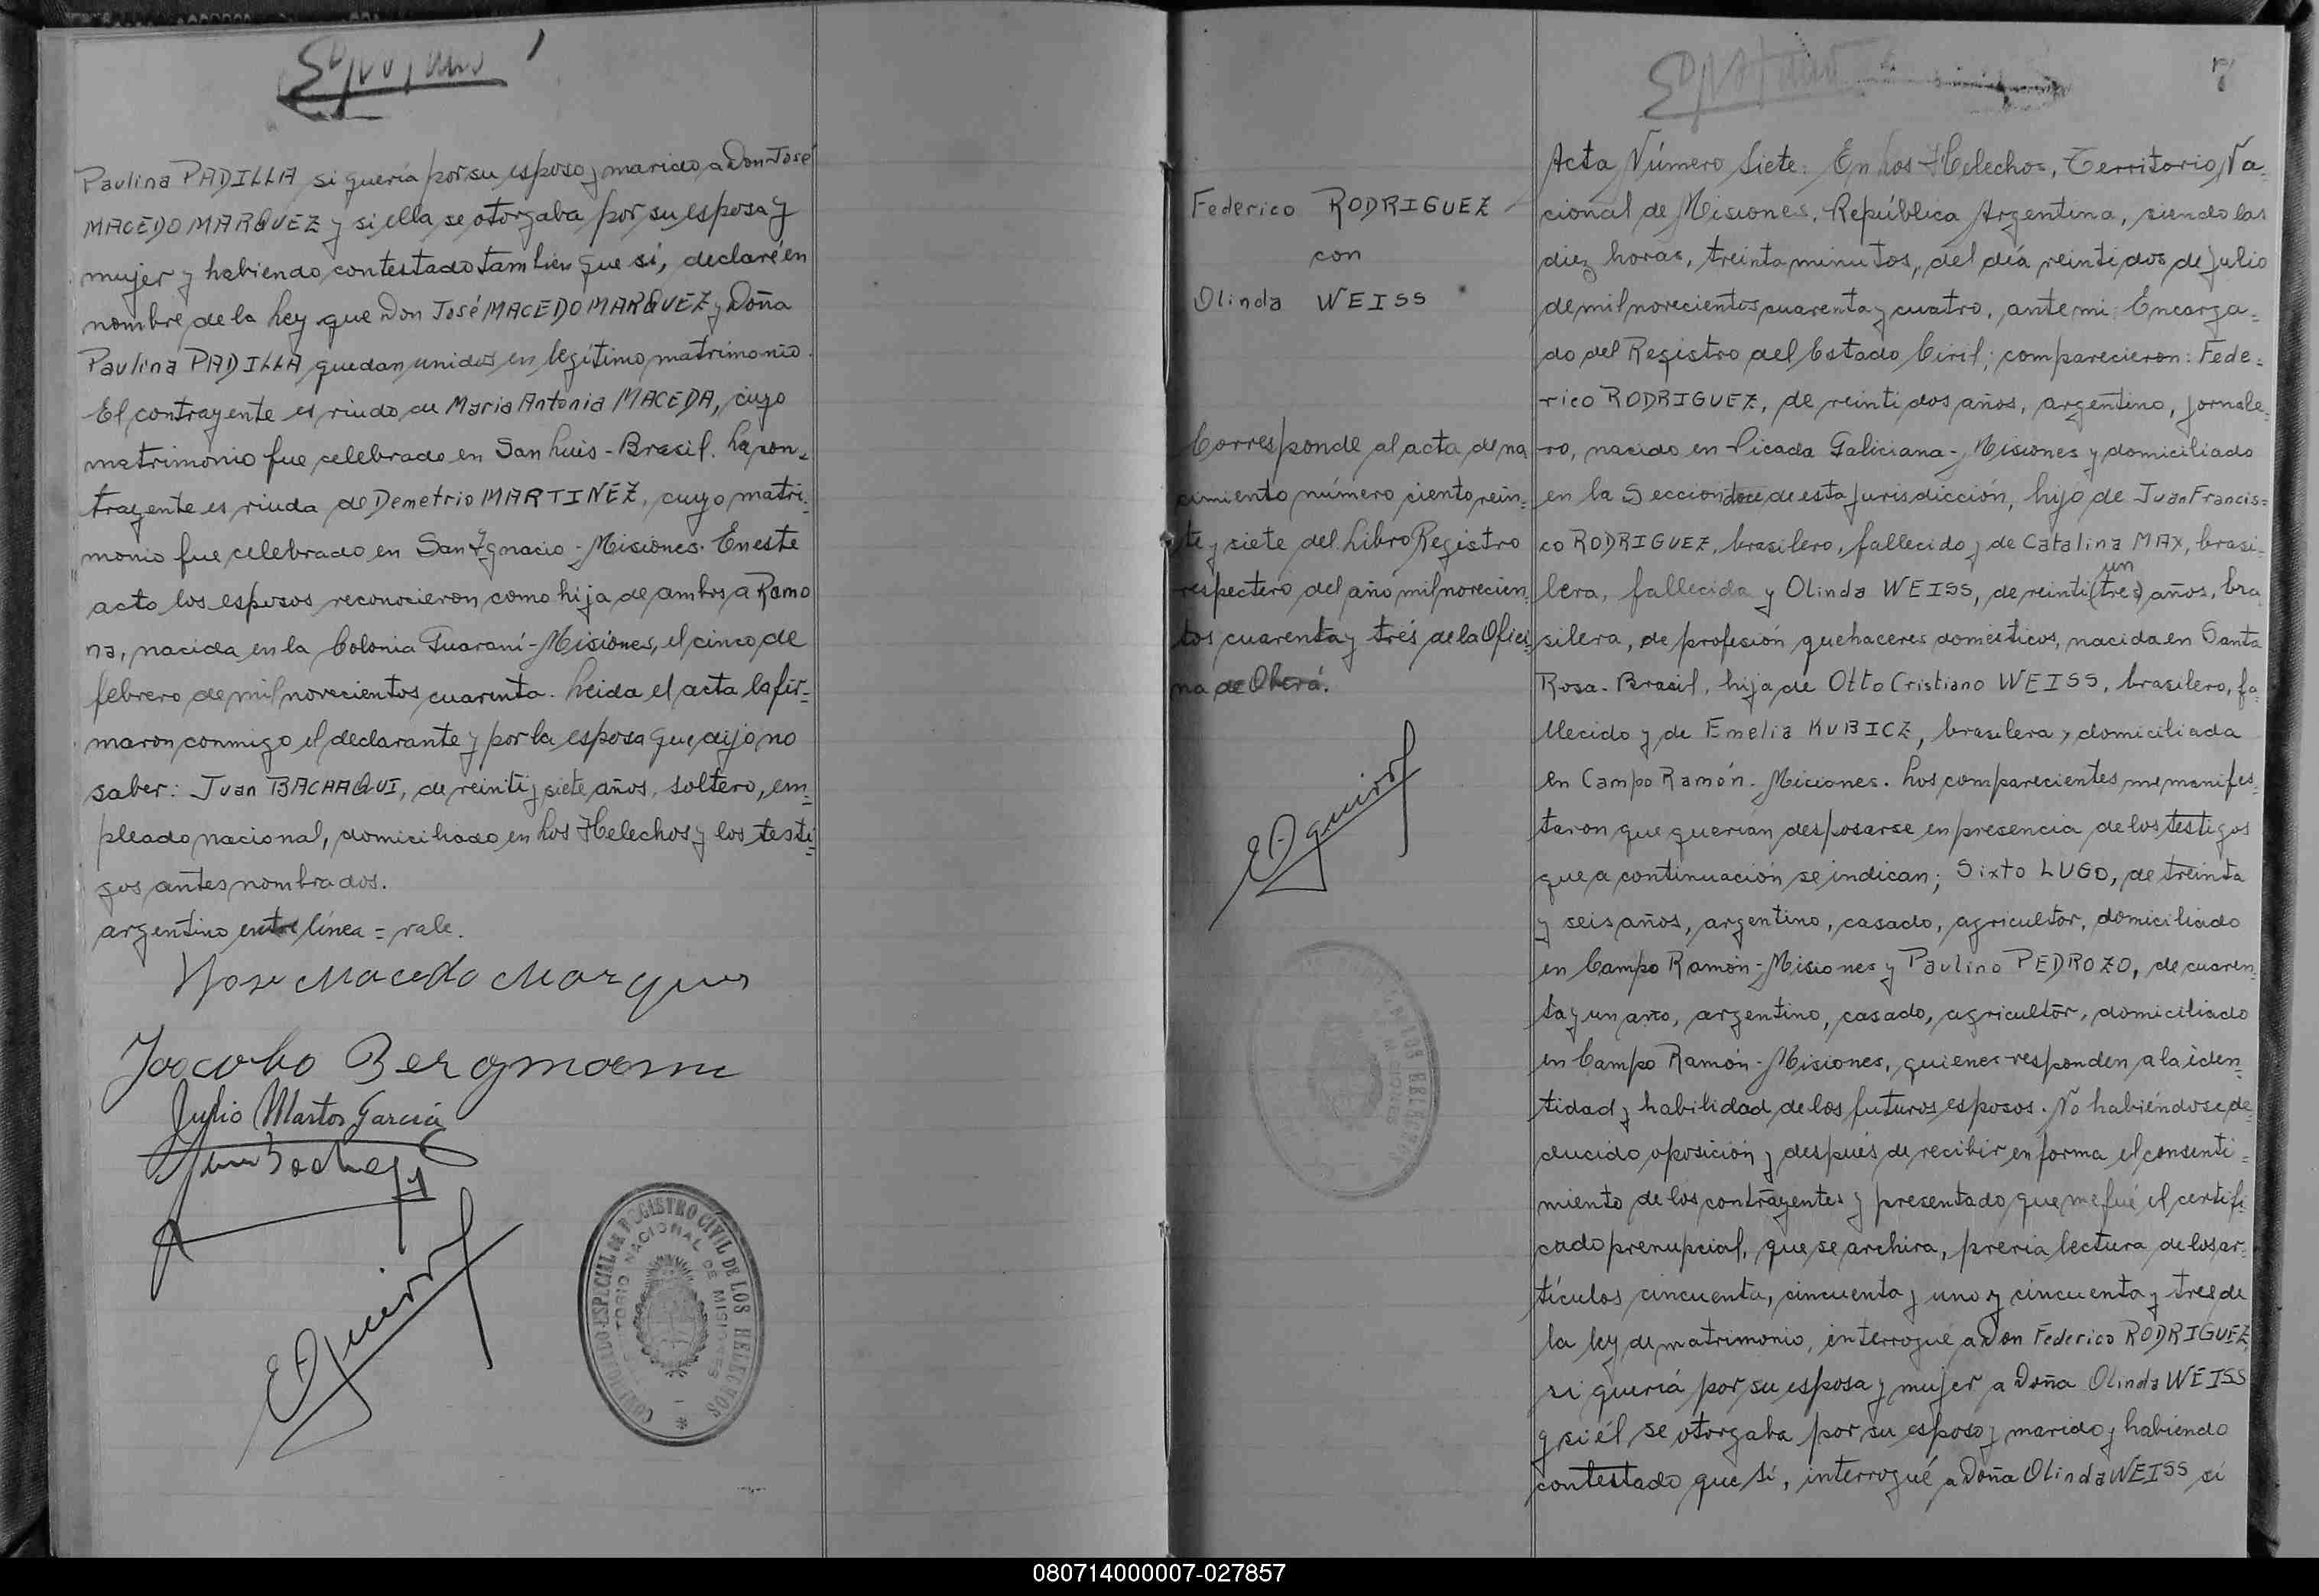 Paulina PADILLA si quería por su esposo y marido a Don José
MACEDO MARQUEZ y si ella se otorgaba por su esposa y
mujer y habiendo contestado tambien que sí, declaré en
nombre de la Ley que Don José MACEDO MARQUEZ y Doña
Paulina PADILLA quedan unidos en legítimo matrimonio.
El contrayente es viudo de Maria Antonia MACEDA, cuyo
matrimonio fue celebrado en San Luis - Brasil. La con-
trayente es viuda de Demetrio MARTINEZ, cuyo matri-
monio fue celebrado en San Ignacio - Misiones. En este
acto los esposos reconocieron como hija de ambos a Ramo
na, nacida en la Colonia Guaraní - Misiones, el cinco de
febrero de mil novecientos cuarenta. Leida el acta la fir-
maron conmigo el declarante y por la esposa que dijo no
saber: Juan BACHAQUI, de veinti y siete años, soltero, em=
pleado nacional, domiciliado en Los Helechos y los testi=
gos antes nombrados.
argentino entre línea = vale.
Jose Macedo Marques
Jacobo Bergmann
Julio Martos García
COMISIONADO ESPECIAL DE REGISTRO CIVIL DE LOS HELECHOS
TERRITORIO NACIONAL DE MISIONES
7
Federico RODRIGUEZ
con
Olinda WEISS
Corresponde al acta de na
cimiento número ciento vein-
te y siete del Libro Registro
respectivo del año mil novecien-
tos cuarenta y trés de la Ofici-
na de Oberá.
Acta Número Siete: En Los Helechos, Territorio Na=
cional de Misiones, República Argentina, siendo las
diez horas, treinta minutos, del día veintidos de Julio
de mil novecientos cuarenta y cuatro, ante mi: Encarga=
do del Registro del Estado Civil; comparecieron: Fede=
rico RODRIGUEZ, de veintidos años, argentino, jornale=
ro, nacido en Picada Galiciana - Misiones y domiciliado
en la Seccion doce de esta Jurisdicción, hijo de Juan Francis=
co RODRIGUEZ, brasilero, fallecido y de Catalina MAX, brasi=
un
lera, fallecida y Olinda WEISS, de veinti (tres) años, bra
silera, de profesión quehaceres domésticos, nacida en Santa
Rosa - Brasil, hija de Otto Cristiano WEISS, brasilero, fa-
llecido y de Emelia KUBICZ, brasilera y domiciliada
en Campo Ramón - Misiones. Los comparecientes me manifes=
taron que querían desposarse en presencia de los testigos
que a continuación se indican; Sixto LUGO, de treinta
y seis años, argentino, casado, agricultor, domiciliado
en Campo Ramón - Misiones y Paulino PEDROZO, de cuaren
ta y un año, argentino, casado, agricultor, domiciliado
en Campo Ramón - Misiones, quienes responden a la iden=
tidad y habilidad de los futuros esposos. No habiéndose de=
ducido oposición y después de recibir en forma el consenti=
miento de los contrayentes y presentado que me fué el certifi
cado prenupcial, que se archiva, previa lectura de los ar-
tículos cincuenta, cincuenta y uno y cincuenta y tres de
la ley de matrimonio, interrogué a Don Federico RODRIGUEZ
si quería por su esposa y mujer a Doña Olinda WEISS
y si él se otorgaba por su esposo y marido y habiendo
contestado que Sí, interrogué a Doña Olinda WEISS si
080714000007-027857